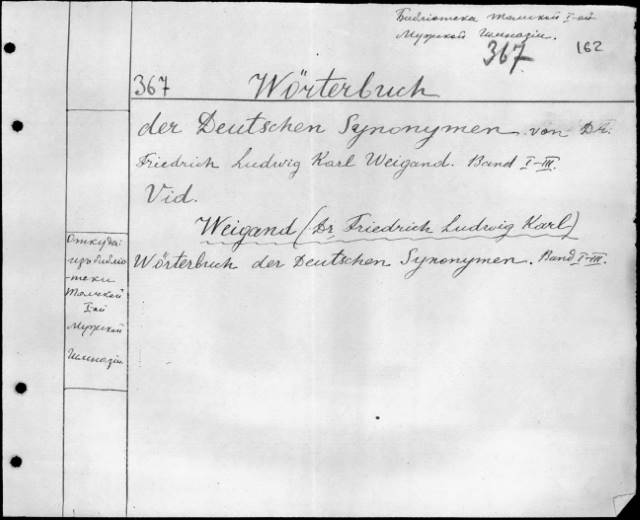 Библіотека Томской I-ой
Мужской Гимназіи.
367 162
367 Wörterbuch
der Deutschen Synonymen von Dr.
Friedrich Ludwig Karl Weigand. Band I-III.
Vid.
Weigand (Dr. Friedrich Ludwig Karl)
Wörterbuch der Deutschen Synonymen. Band I-III.
Откуда:
изъ библіо-
-теки
Томской
I-ой
Мужской
Гимназіи